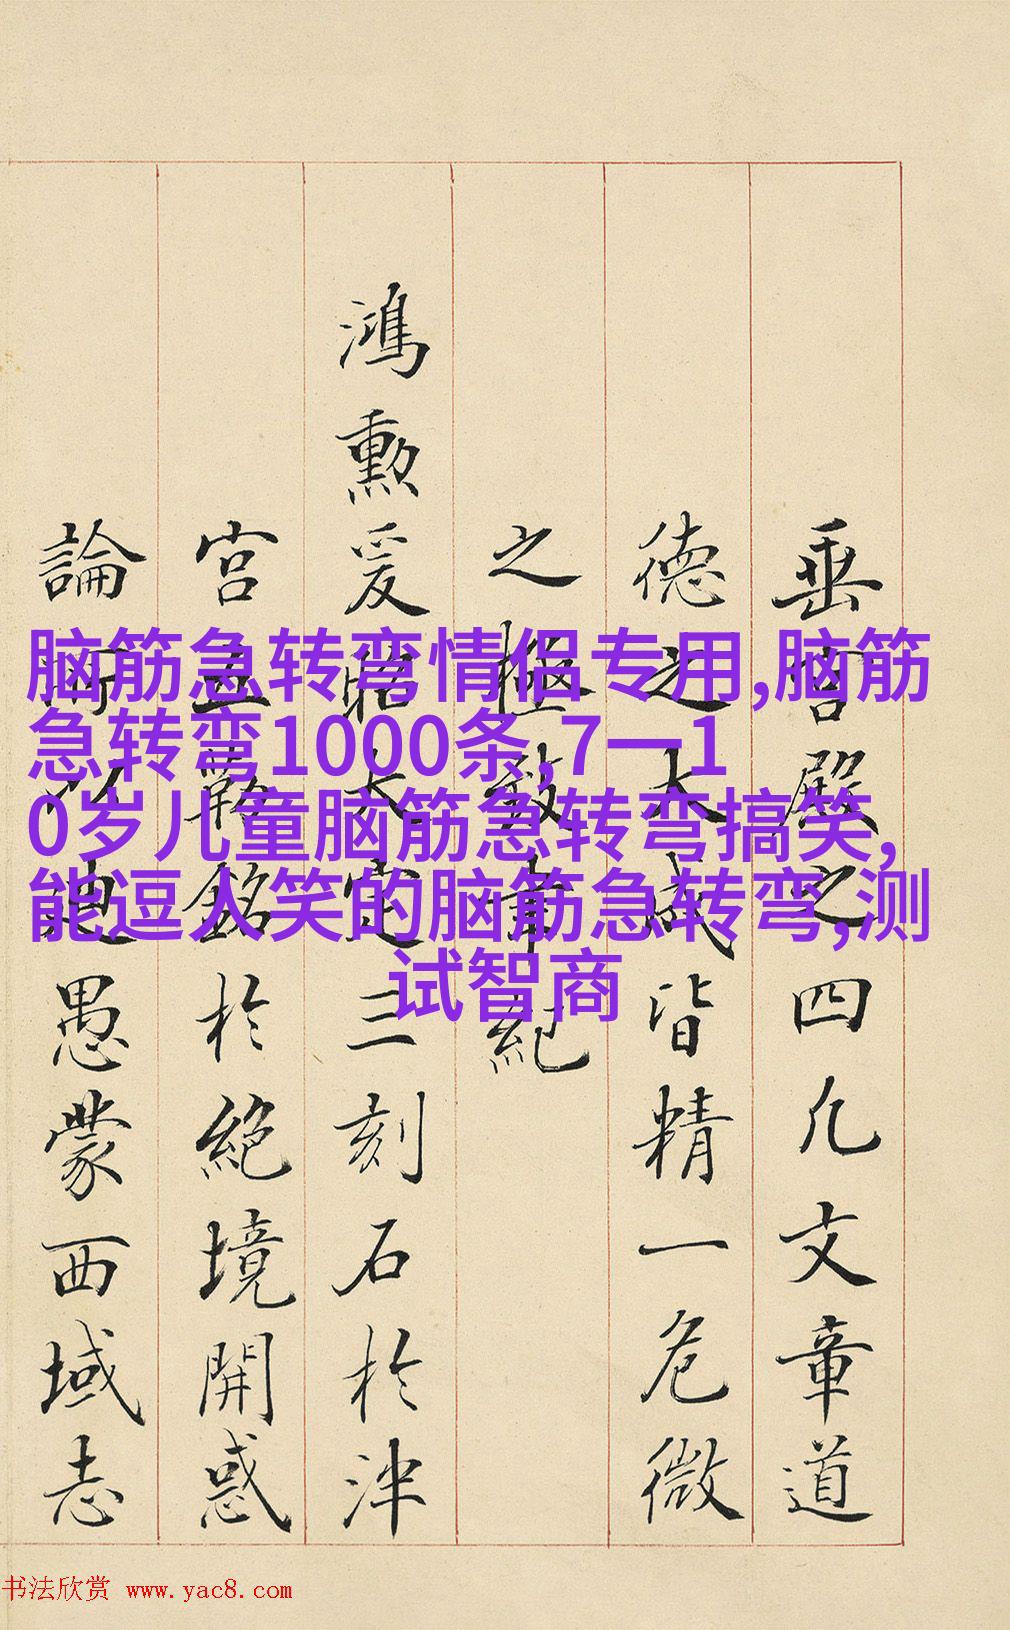 垂言殿之四几文章道
德之大成皆精一危微
之極致聿紀
鴻勲爰昭大定三刻石於泮
宮並勒銘於絶境開惑
論所以迪愚蒙西域志
脑筋急转弯情侣专用,脑筋
急转弯1000条,7一1
0岁儿童脑筋急转弯搞笑,
能逗人笑的脑筋急转弯,测
试智商
书法欣赏 www.yac8.com